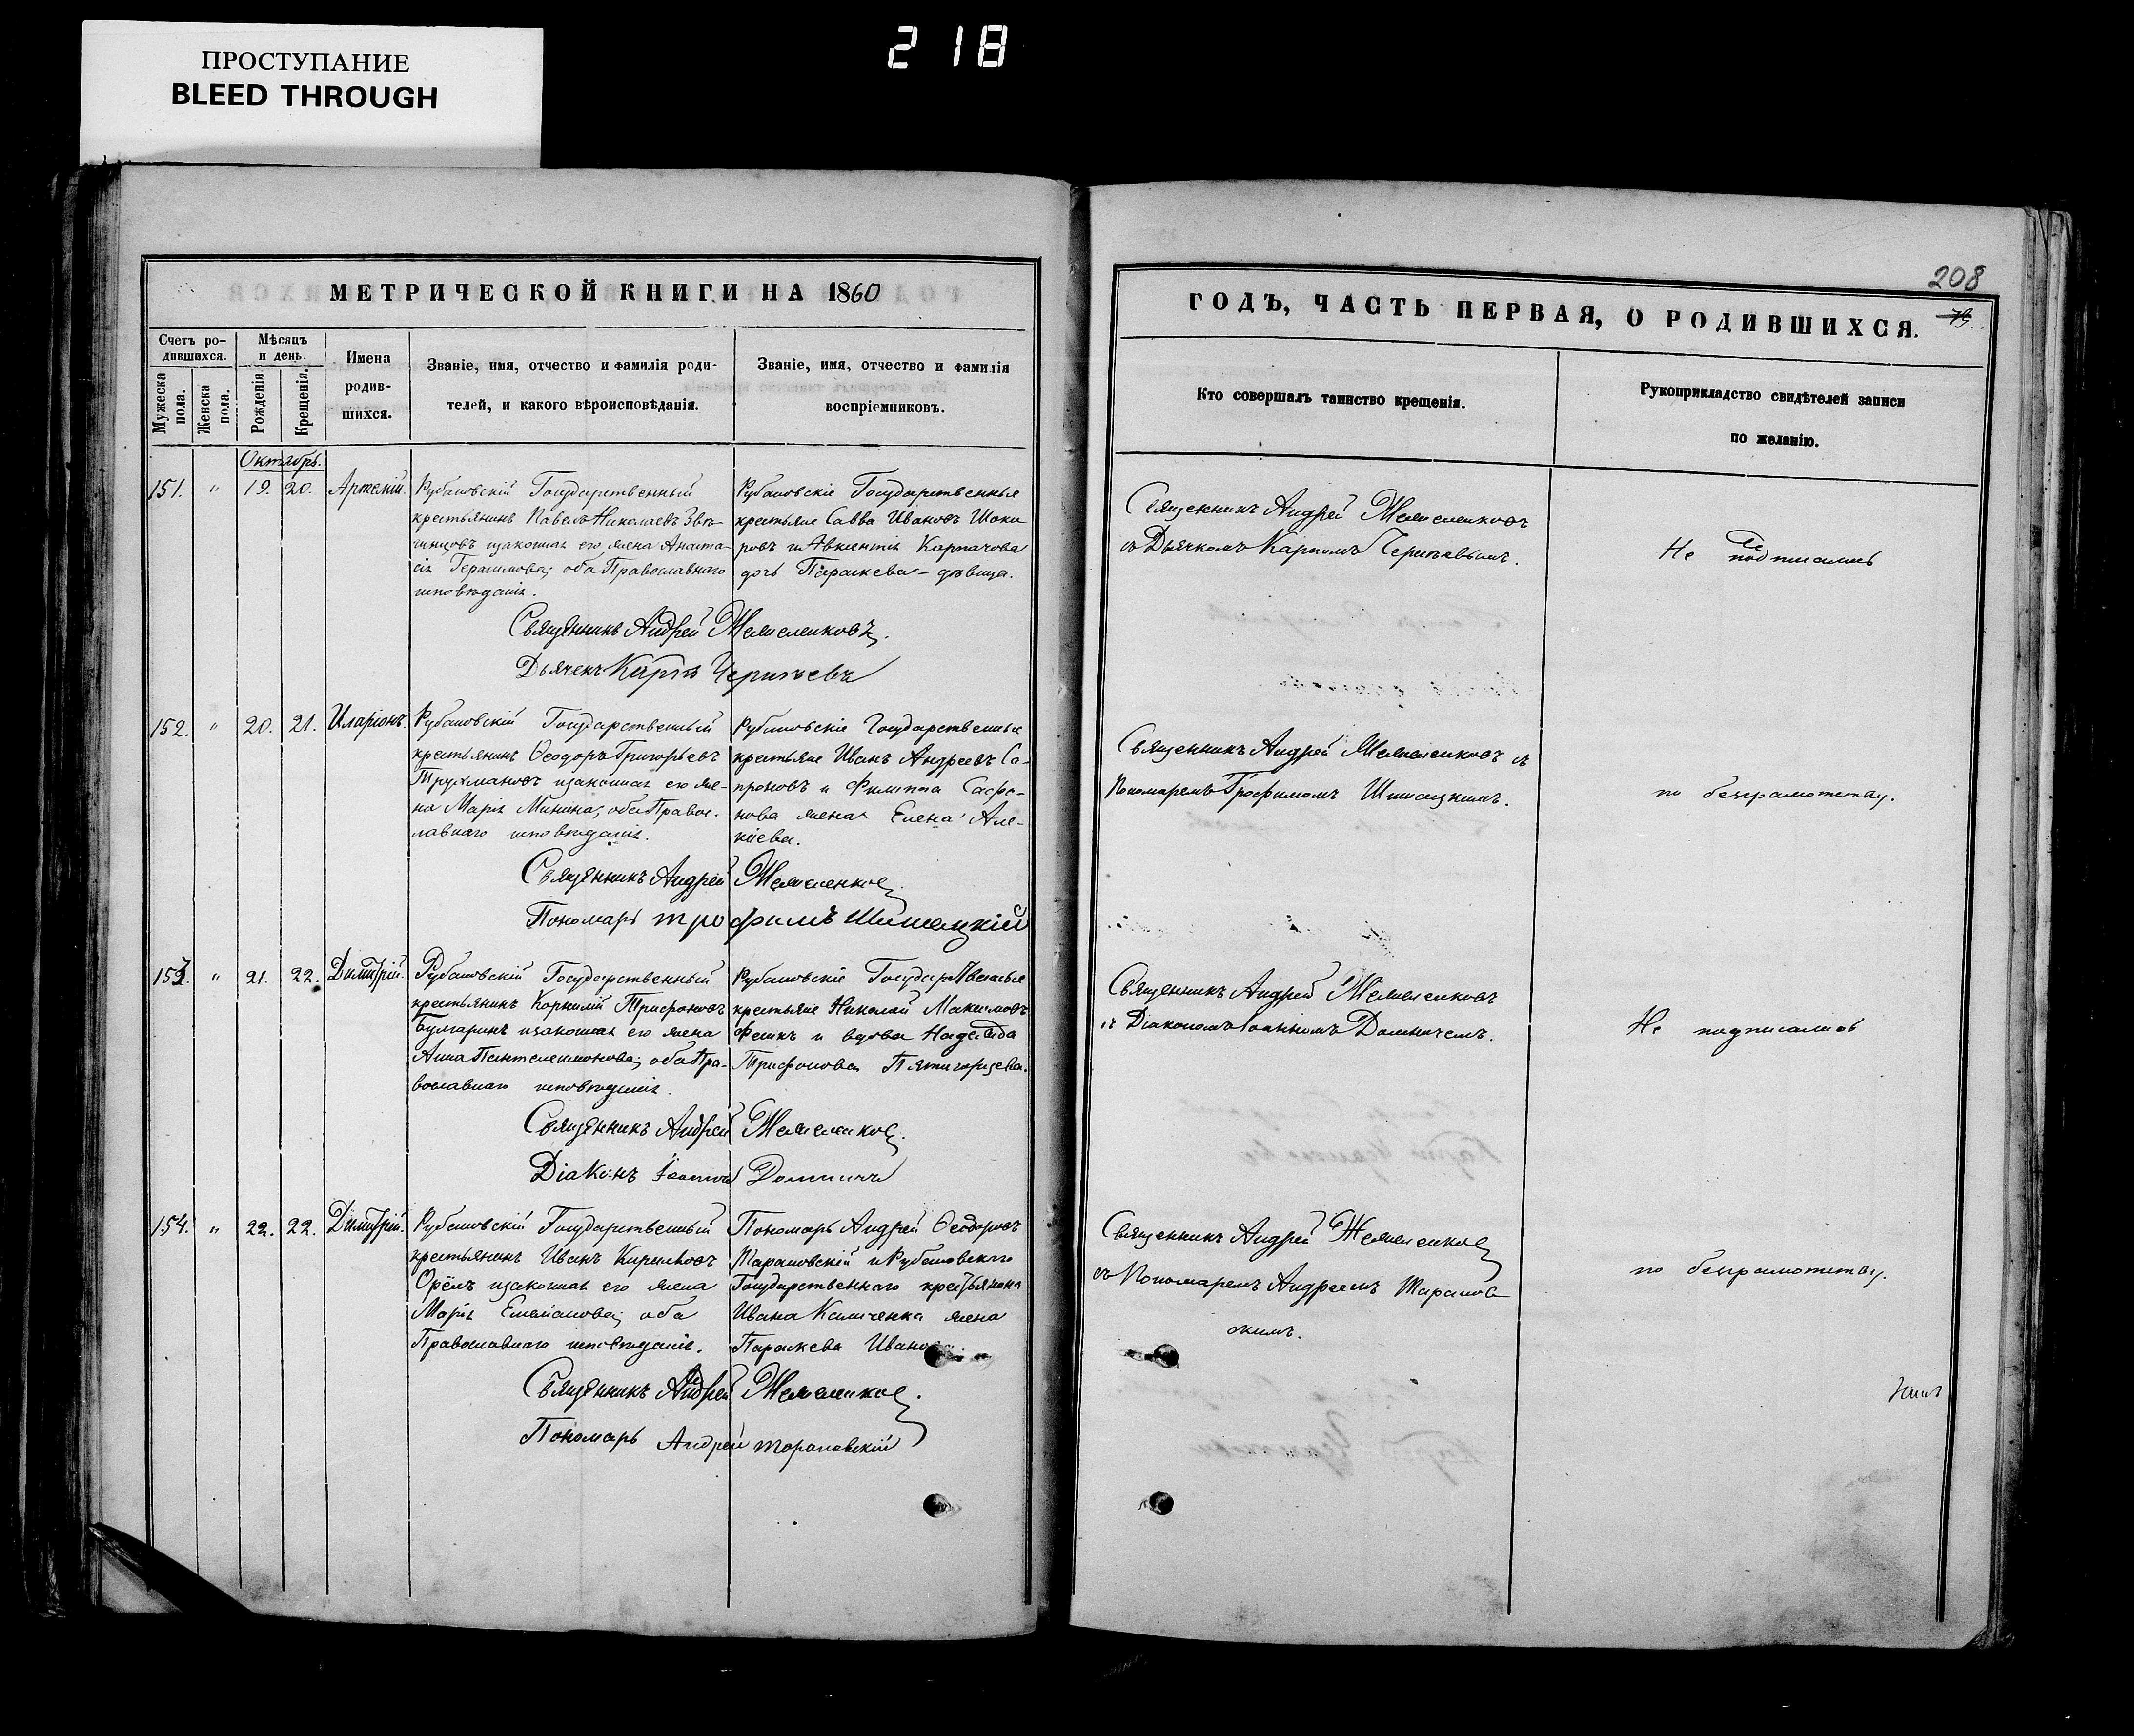 ПРОСТУПАНИЕ
BLEED THROUGH
218
МЕТРИЧЕСКОЙ КНИГИ НА 1860
Счетъ ро-
дившихся.
Мужеска пола.
Женска пола.
Мѣсяцъ
и день.
Рожденія.
Крещенія.
Имена
родив-
шихся.
Званіе, имя, отчество и фамилія роди-
телей, и какого вѣроисповѣданія.
Званіе, имя, отчество и фамилія
воспріемниковъ.
Октябрь.
151. " 19. 20. Артемій.
Рубановскій Государственный
крестьянинъ Павелъ Николаевъ
законная его жена Анаста-
сія Герасимова; оба Православнаго
исповѣданія.
Рубановскіе Государственные
крестьяне Савва Ивановъ
и Авксентія Карпачова
дочь Параскева - дѣвица.
Священникъ Андрей
Дьячекъ Карпъ
152. " 20. 21. Иларіонъ.
Рубановскій Государственный
крестьянинъ Ѳеодоръ Григорьевъ
Трухмановъ и законная его же-
на Марія Минина; оба Правос-
лавнаго исповѣданія.
Рубановскіе Государственные
крестьяне Иванъ Андреевъ Са-
проновъ и Филиппа Сафо-
нова жена Елена
Священникъ Андрей
Пономарь Трофимъ Шишацкій
153. " 21. 22. Димитрій.
Рубановскій Государственный
крестьянинъ Корнилій Трифоновъ
Булгаринъ и законная его жена
Анна Пантелеимонова; оба Пра-
вославнаго исповѣданія.
Рубановскіе Государственные
крестьяне Николай Максимовъ
и вдова Надежда
Трифонова Пятигорцева.
Священникъ Андрей
Діаконъ Іоаннъ Доминичъ
154. " 22. 22. Димитрій.
Рубановскій Государственный
крестьянинъ Иванъ Кириловъ
Орёлъ и законная его жена
Марія Емеліанова; оба
Православнаго исповѣданія.
Пономарь Андрей Ѳеодоровъ
Тарановскій и Рубановскаго
Государственнаго крестьянина
Ивана жена
Параскева
Священникъ Андрей
Пономарь Андрей Тарановскій
208
ГОДЪ, ЧАСТЬ ПЕРВАЯ, О РОДИВШИХСЯ.
Кто совершалъ таинство крещенія.
Рукоприкладство свидѣтелей записи
по желанію.
Священникъ Андрей
съ Дьячкомъ Карпомъ
Не подписались
Священникъ Андрей съ
Пономаремъ Трофимомъ Шишацкимъ.
по безграмотству.
Священникъ Андрей
съ Діакономъ Іоанномъ Доминичемъ.
Не подписались
Священникъ Андрей
съ Пономаремъ Андреемъ Таранов-
скимъ.
по безграмотству.